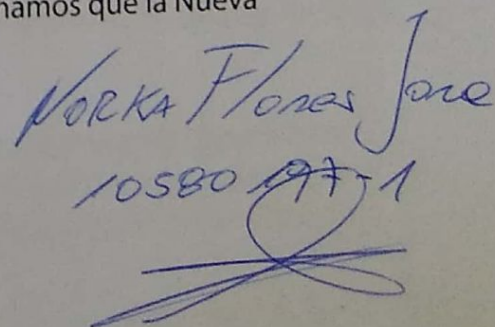 hamos que la Nueva
NORKA Flores Jara
10580197-1